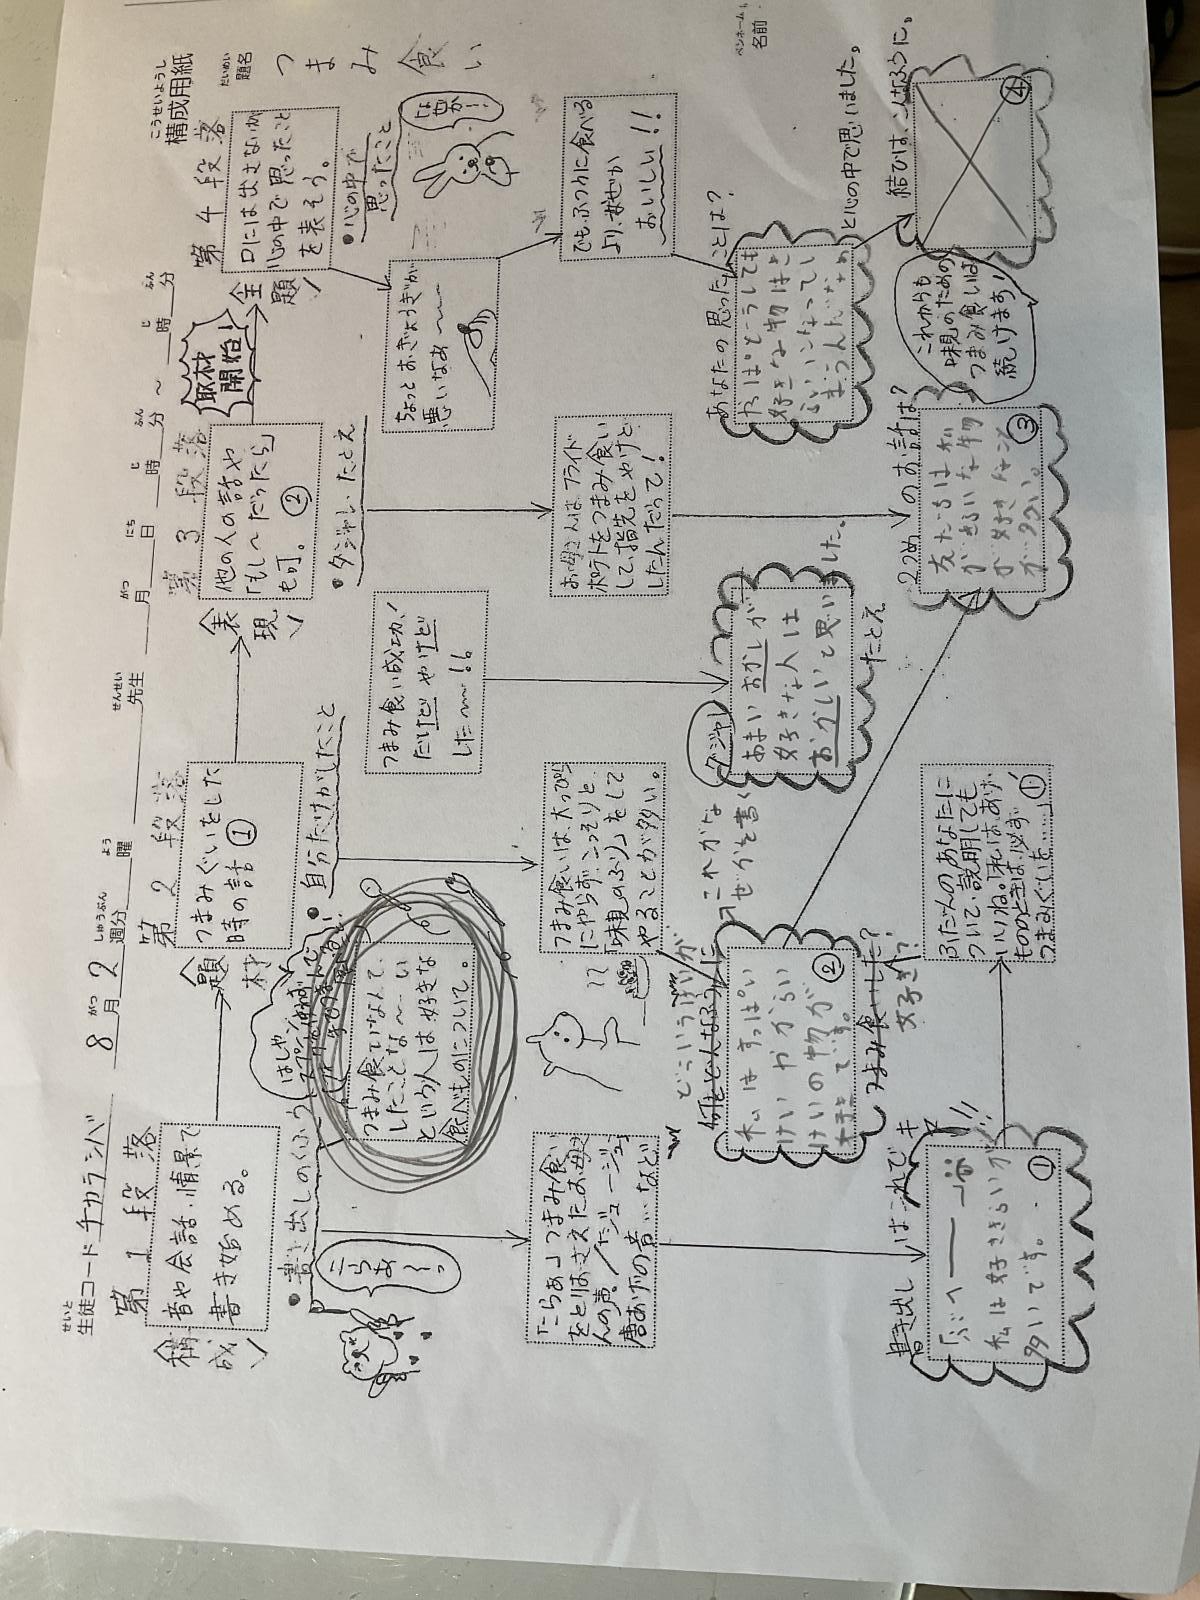 構成用紙
こうせいようし
生徒コード チカラシバ
せいと
8月2週分
がつ
しゅうぶん
曜
よう
先生
せんせい
月
がつ
日
にち
時
じ
分
ふん
～
時
じ
分
ふん
題名
だいめい
つまみ食い
ペンネーム
名前
第1段落
構成
音や会話、情景で
書き始める。
第2段落
題材
つまみぐいをした
時の話 ①
第3段落
表現
他の人の話や
「もし～だったら」
も可。 ②
取材
開始!
第4段落
主題
口には出さないが
心の中で思ったこと
を表そう。
・書き出しのくふう
こらぁ～っ
・自分だけがしたこと
つまみ食いなんて、
したことな～い
という人は好きな
食べものについて。
・ダジャレ、たとえ
つまみ食い成功、
だけど やけど
した～!!
・心の中で
思ったこと
なぬか!
ちょっとおぎょうぎが
悪いなぁ～～
「こらぁ」つまみ食い
をとりおさえたお母さ
んの声。/「ジュージュー」
唐あげの音…など
つまみ食いは、大っぴら
にやらず、こっそりと
「味見のふり」をして
やることが多い。
お母さんは、フライド
ポテトをつまみ食い
して、指先をやけど
したんだって!
でも、ふつうに食べる
より、なぜか
おいしい!!
どういうほいが
これがな
ぜかを書く
私はすっぱい
けいかからい
けいの物が
大好きです。
②
つまみ食いした?
好き?
ダジャレ
あまいおかしが
好きな人は
おかしいと思いました。
たとえ
あなたの思ったことは?
だけどどうしても
好きな物はこ
と心の中で思いました。
書き出しはこれで
キマリ!!
私は好ききらいが
多いです。
①
ふだんのあなたに
ついて、説明しても
いいね。「私は、あげ
ものときは、必ず
つまみぐいを……」①
2つめのお話は?
友だちは
が好きなこと
が多い。
③
結びは、こんなふうに。
④
これからも
味見のための
つまみ食いは
続けます!